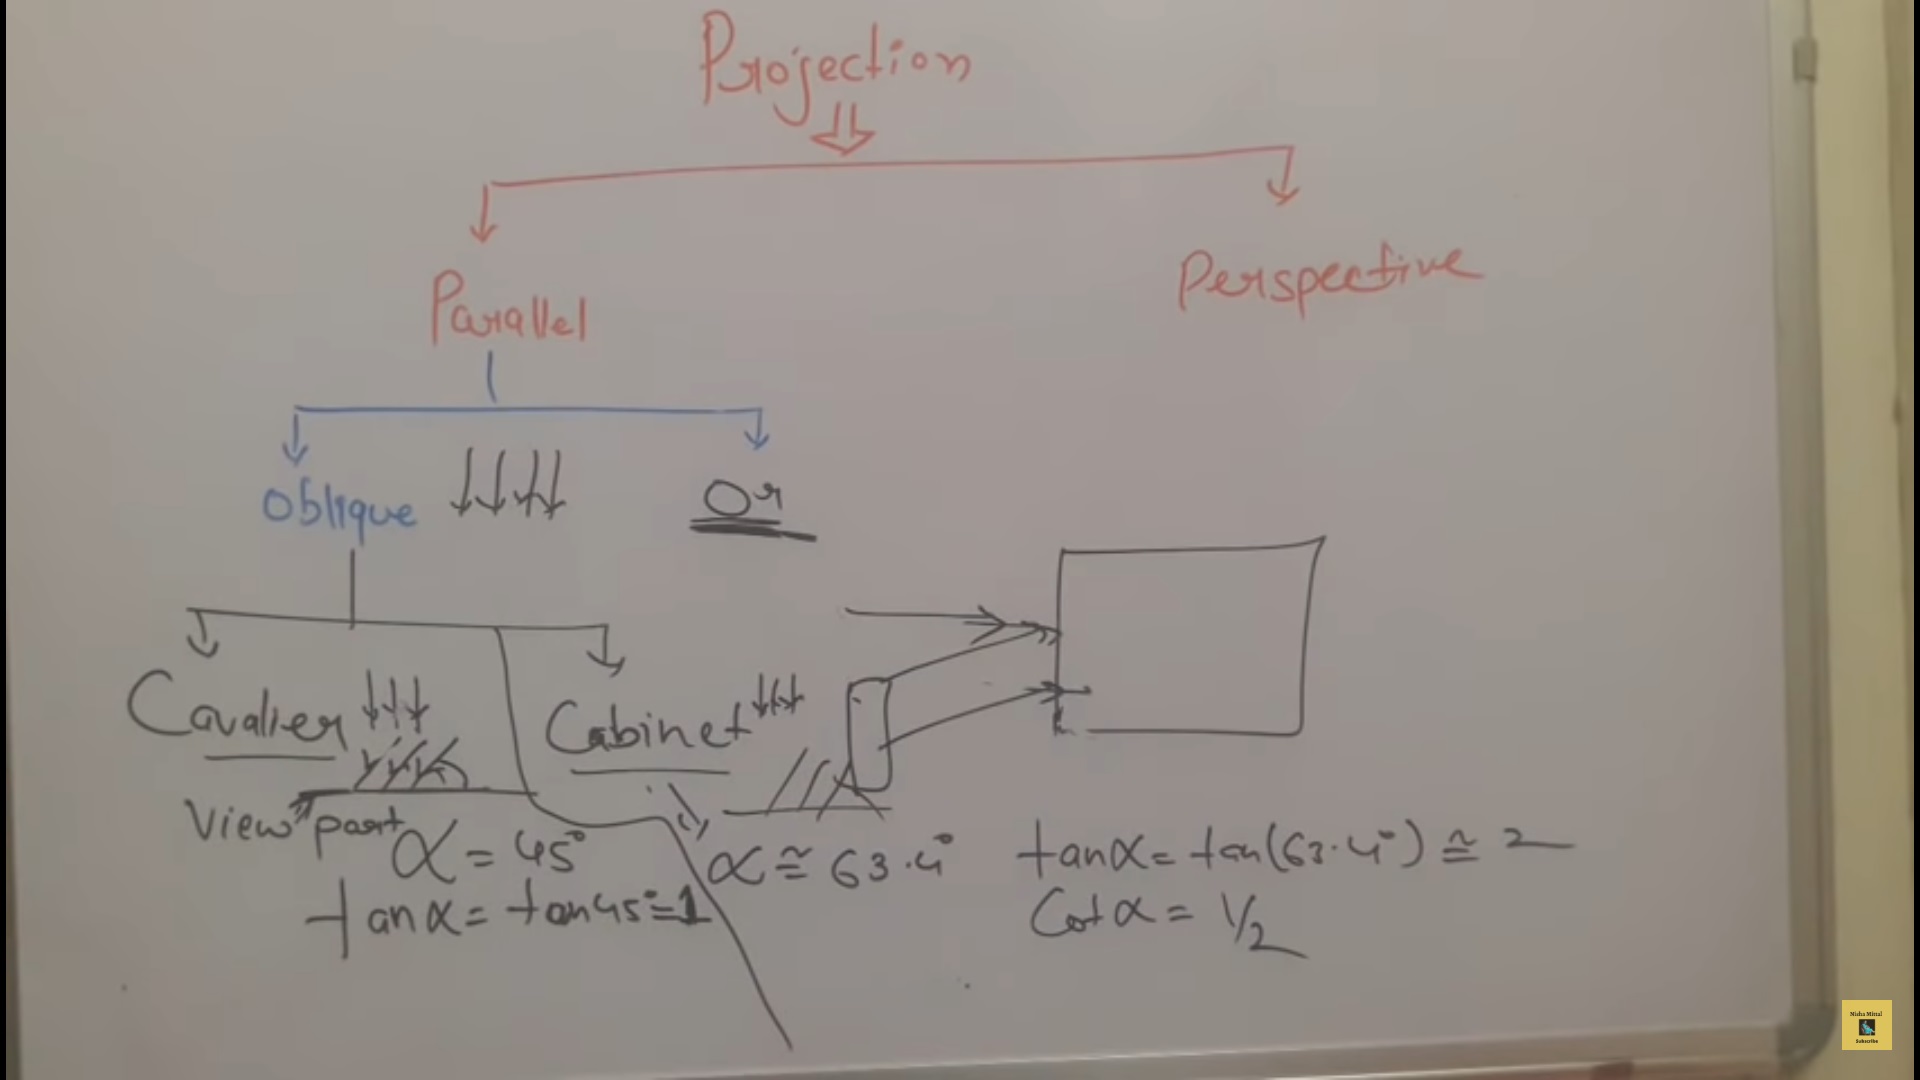 Projection
Parallel
Perspective
Oblique
Or
Cavalier
Cabinet
View part
α = 45°
tanα = tan45° = 1
α ≅ 63.4°
tanα = tan(63.4°) ≅ 2
Cotα = 1/2
Nisha Mittal
Subscribe